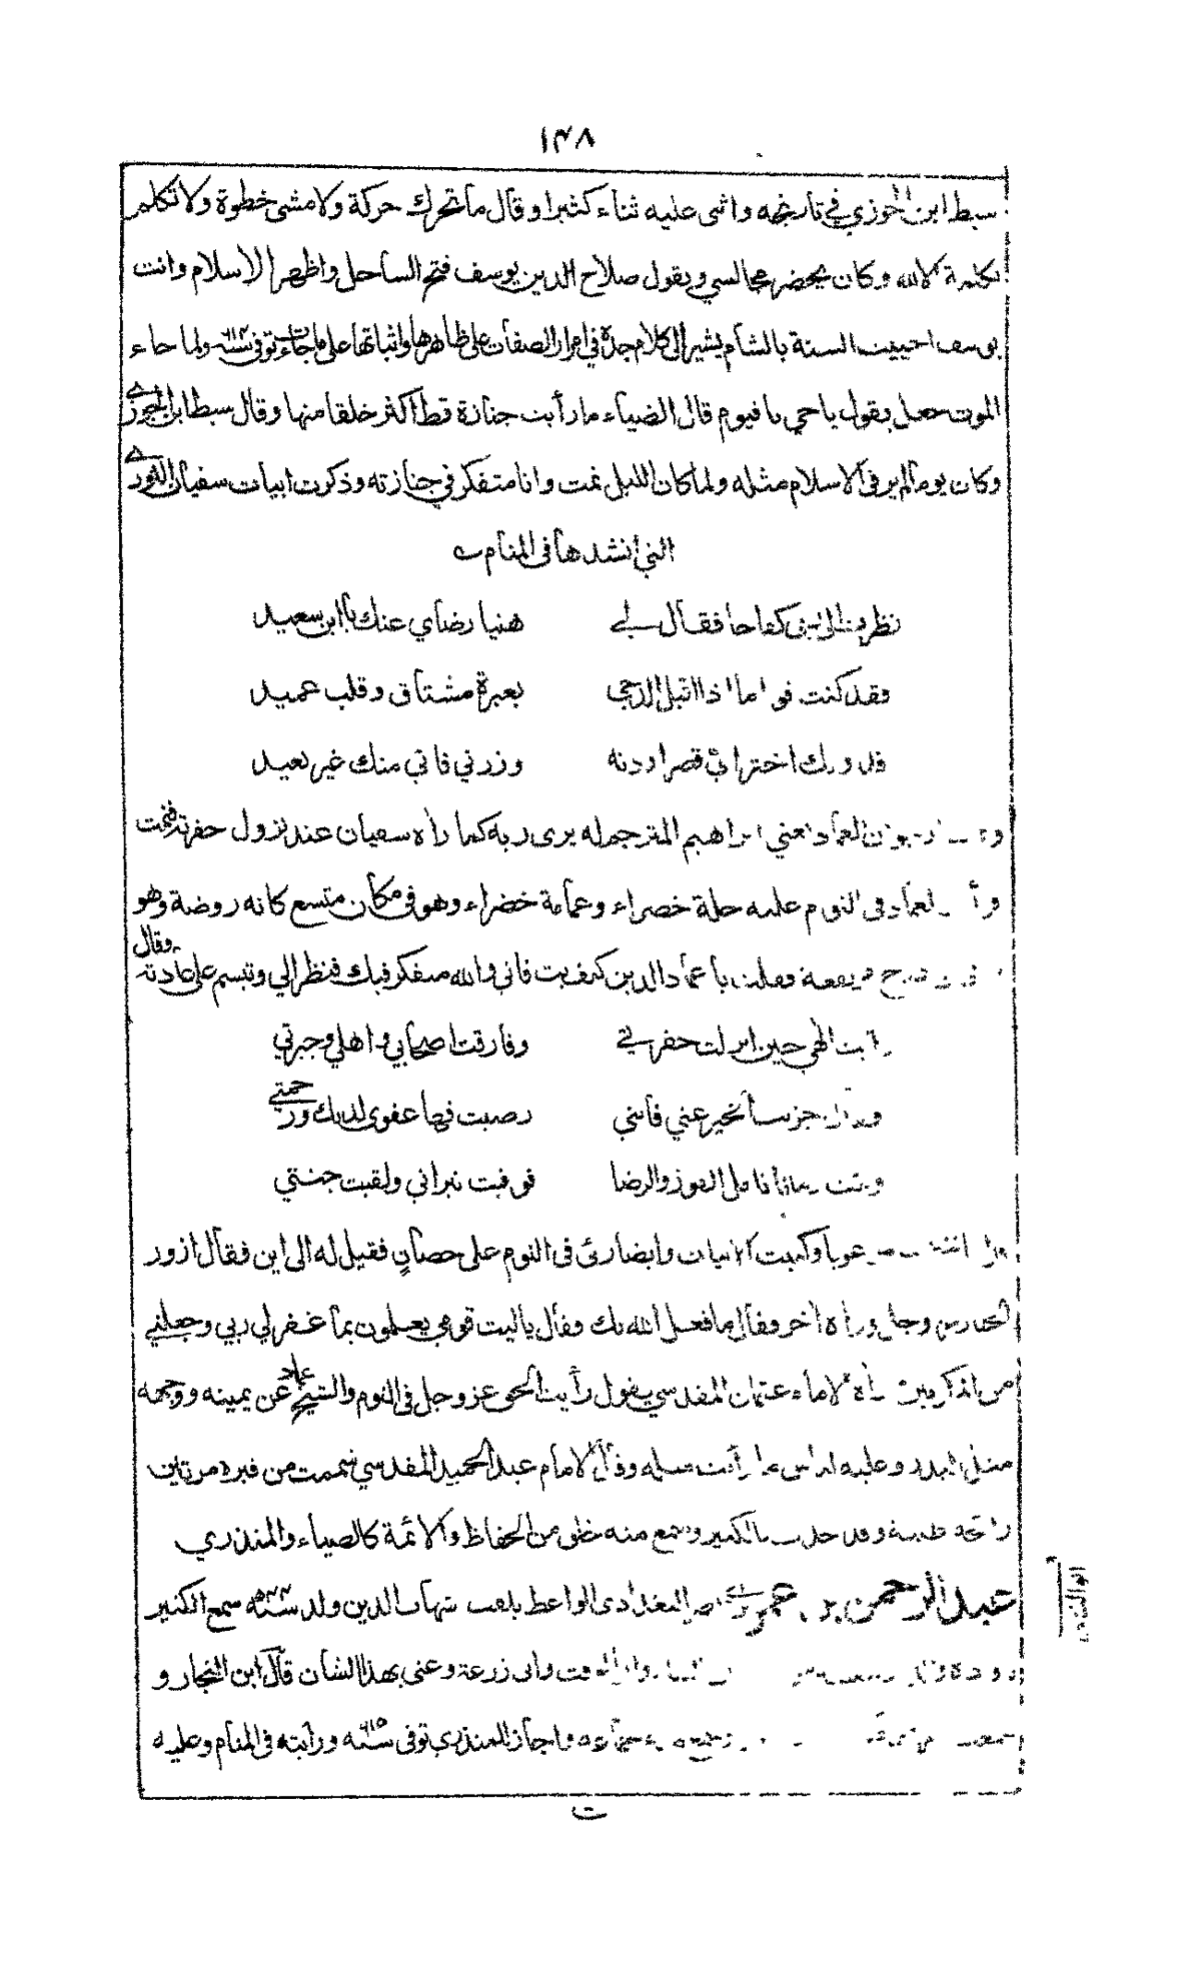 ١٣٨
سبط ابن الجوزي في تاريخه واثنى عليه ثناء كثيرا وقال ما تحرك حركة ولا مشى خطوة ولا تكلم
بكلمة الا لله وكان يحضر مجالسي ويقول صلاح الدين يوسف فتح الساحل واظهر الاسلام وانت
يوسف احييت السنة بالشام يشير الى كلام جده في امرار الصفات على ظاهرها واثباتها على ما جاءت توفي سنة ٦١٤ ولما جاء
الموت جعل يقول يا حي يا قيوم قال الضياء ما رأيت جنازة قط اكثر خلقا منها وقال سبط ابن الجوزي
وكان يوما لم ير في الاسلام مثله ولما كان الليل نمت وانا متفكر في جنازته وذكرت ابيات سفيان الثوري
التي انشدها في المنام
نظرت الى ربي كفاحا فقال لي هنيا رضاي عنك يا ابن سعيد
فقد كنت قواما اذا اقبل الدجى بعبرة مشتاق وقلب عميد
فدونك اختر اي قصر اردته وزرني فاني منك غير بعيد
العماد يعني ابراهيم المترجم له يرى ربه كما رآه سفيان عند نزول حفرته فنمت
العماد في النوم عليه حلة خضراء وعمامة خضراء وهو في مكان متسع كانه روضة وهو
مرتفعة فقلت يا عماد الدين كيف بت فاني والله متفكر فيك فنظر الي وتبسم على عادته وقال
رأيت الهي حين انزلت حفرتي وفارقت اصحابي واهلي وجيرتي
وقال جزيت الخير عني فانني رضيت فها عفوي لديك ورحمتي
تأمل الفوز والرضا فوقيت نيراني ولقيت جنتي
مرعوبا وكتبت الابيات وايضا رئى في النوم على حصان فقيل له الى اين فقال ازور
الجبار عز وجل ورآه آخر فقال ما فعل الله بك فقال يا ليت قومي يعلمون بما غفر لي ربي وجعلني
من المكرمين رآه الامام عثمان المقدسي يقول رأيت الحق عز وجل في النوم والشيخ عماد عن يمينه ووجهه
مثل البدر وعليه لباس ما رأيت مثله وقال الامام عبد الحميد المقدسي شممت من قبره مرتين
رائحة طيبة وقد حدث بالكثير وسمع منه خلق من الحفاظ والائمة كالضياء والمنذري
عبد الرحمن بن عمر البغدادي الواعظ يلقب شهاب الدين ولد سنة ٥٤٣ سمع الكثير
وابي زرعة وعنى بهذا الشان قال ابن النجار و
واجاز للمنذري توفي سنة ٦١٥ ورايته في المنام وعليه
ت